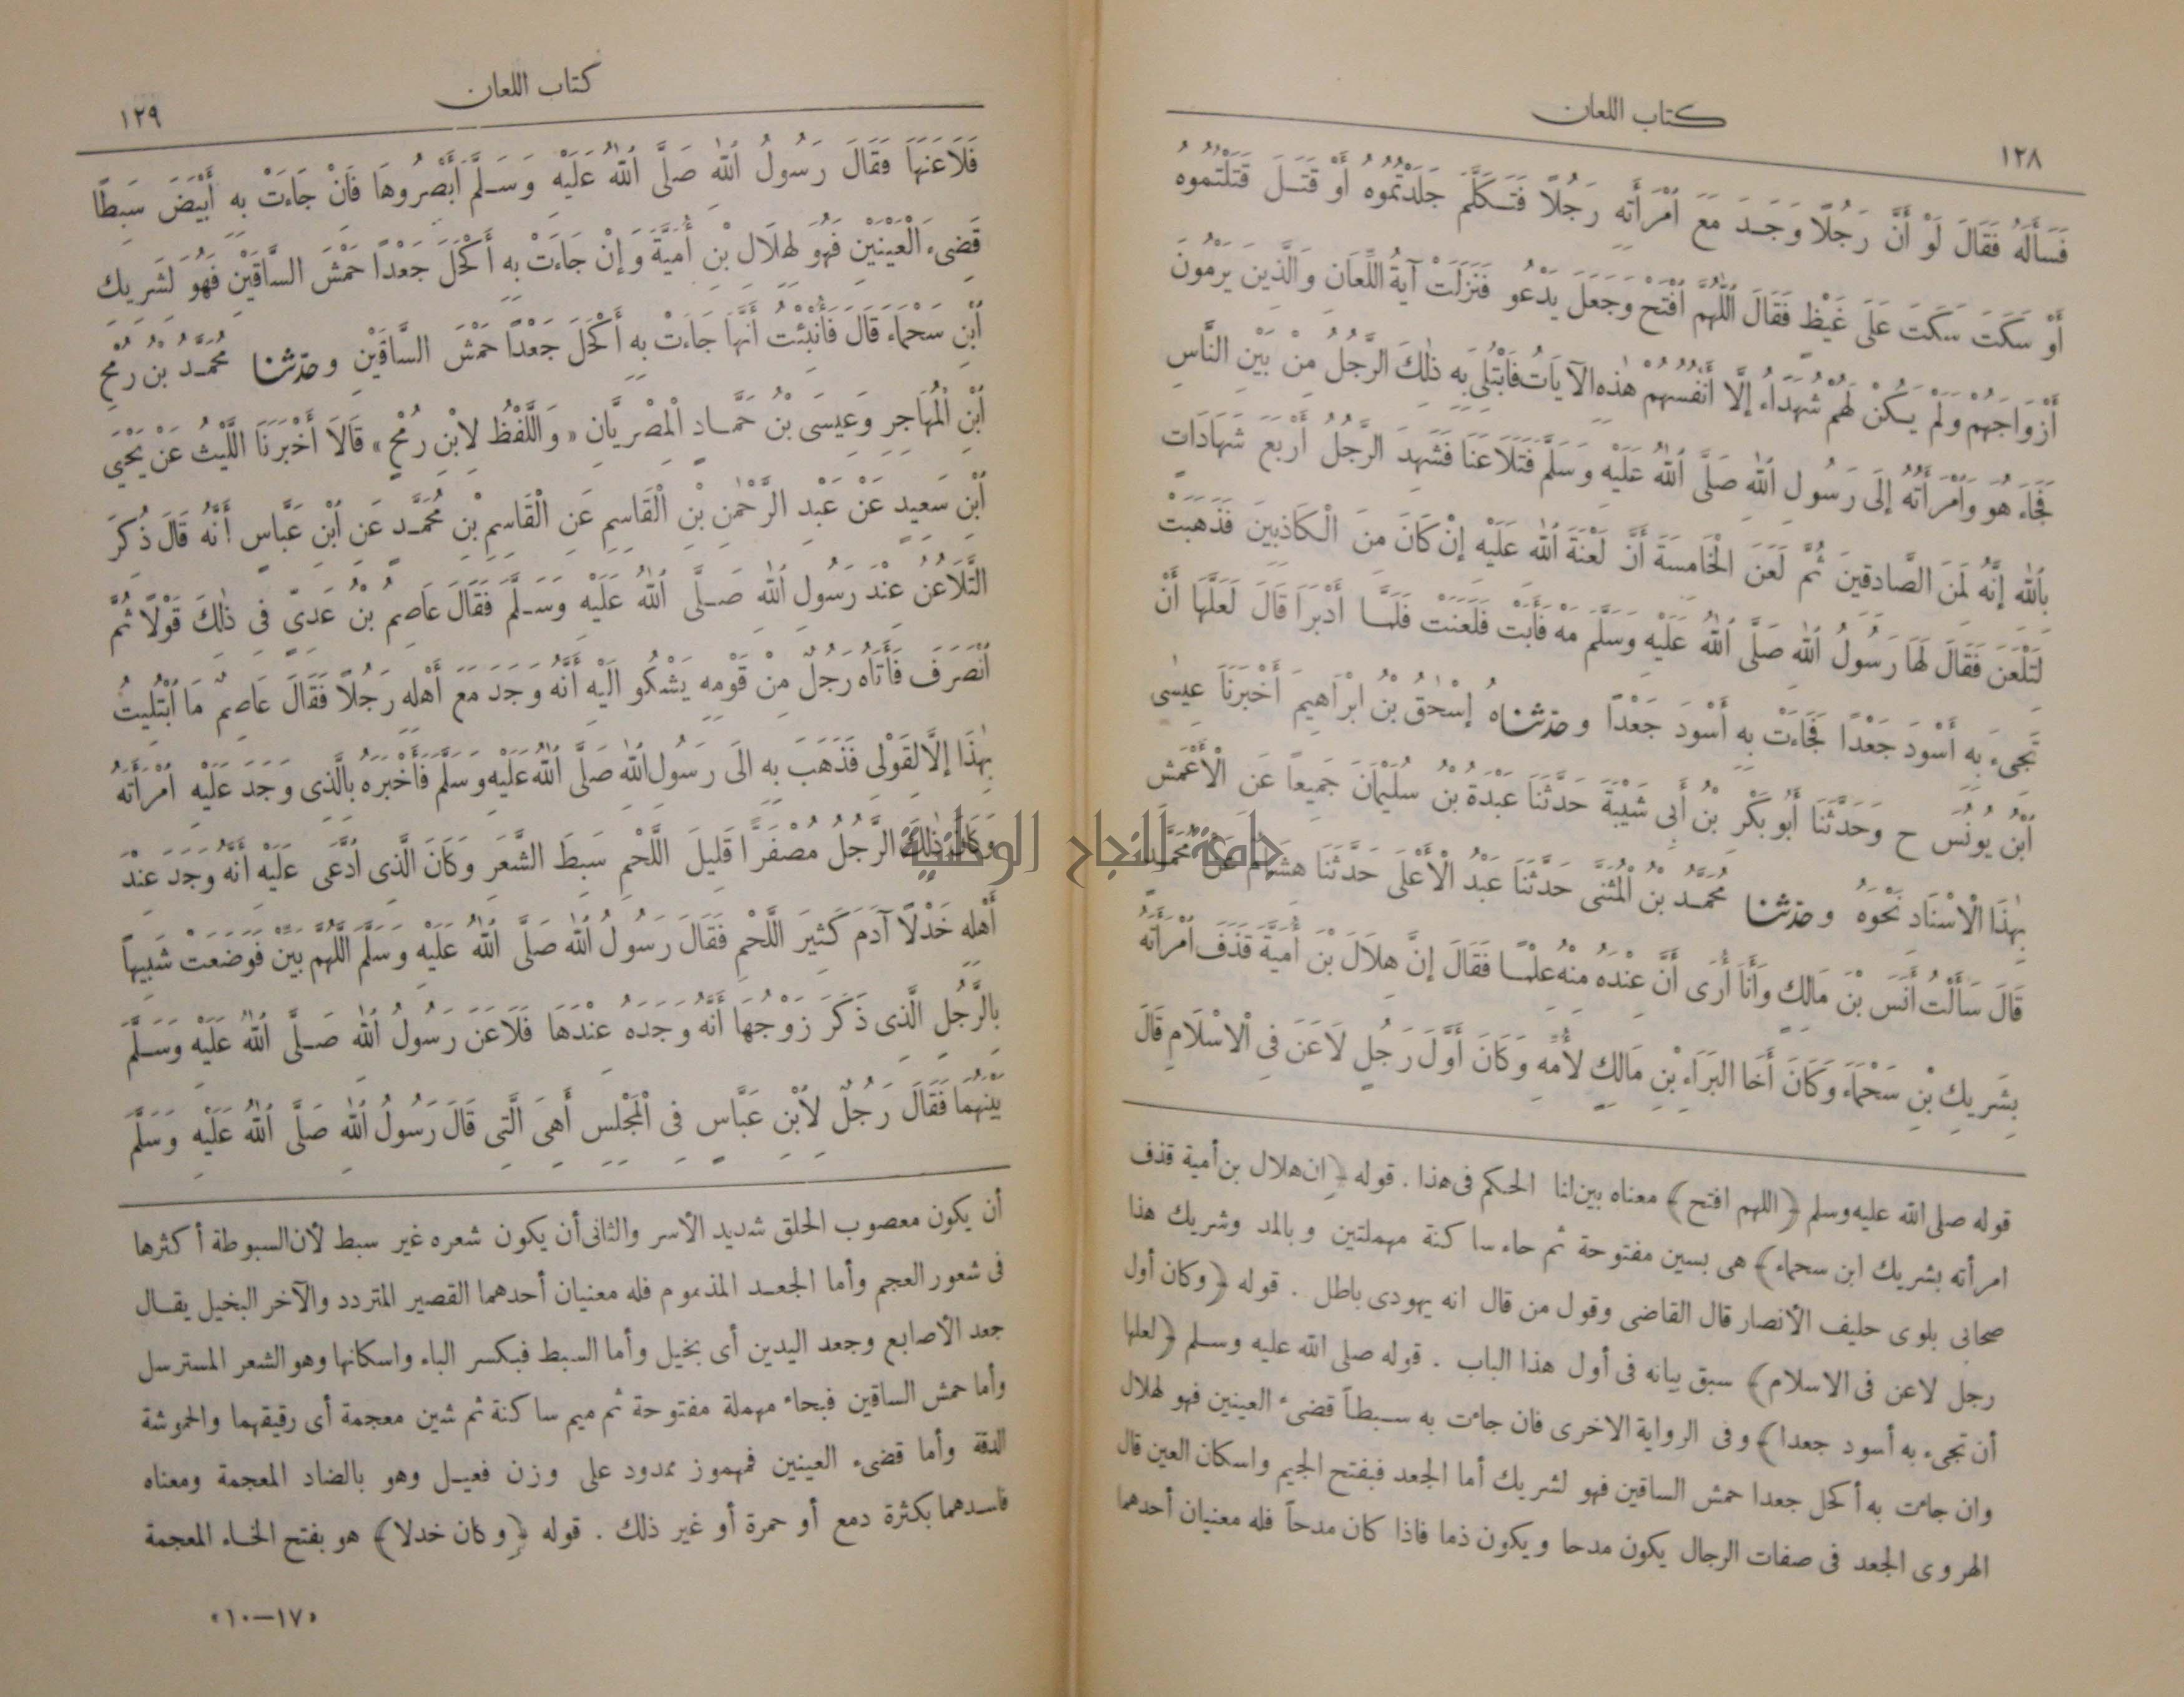 ١٢٨
كتاب اللعان
فَسَأَلَهُ فَقَالَ لَوْ أَنَّ رَجُلًا وَجَدَ مَعَ اُمْرَأَتِهِ رَجُلًا فَتَكَلَّمَ جَلَدْتُمُوهُ أَوْ قَتَلَ قَتَلْتُمُوهُ
أَوْ سَكَتَ سَكَتَ عَلَى غَيْظٍ فَقَالَ اللّٰهُمَّ اُفْتَحْ وَجَعَلَ يَدْعُو فَنَزَلَتْ آيَةُ اللِّعَانِ وَالَّذِينَ يَرْمُونَ
أَزْوَاجَهُمْ وَلَمْ يَكُنْ لَهُمْ شُهَدَاءُ إِلَّا أَنْفُسُهُمْ هٰذِهِ الْآيَاتُ فَابْتُلِيَ بِهِ ذٰلِكَ الرَّجُلُ مِنْ بَيْنِ النَّاسِ
فَجَاءَ هُوَ وَامْرَأَتُهُ إِلَى رَسُولِ اللّٰهِ صَلَّى اللّٰهُ عَلَيْهِ وَسَلَّمَ فَتَلَاعَنَا فَشَهِدَ الرَّجُلُ أَرْبَعَ شَهَادَاتٍ
بِاللّٰهِ إِنَّهُ لَمِنَ الصَّادِقِينَ ثُمَّ لَعَنَ الْخَامِسَةَ أَنَّ لَعْنَةَ اللّٰهِ عَلَيْهِ إِنْ كَانَ مِنَ الْكَاذِبِينَ فَذَهَبَتْ
لِتَلْعَنَ فَقَالَ لَهَا رَسُولُ اللّٰهِ صَلَّى اللّٰهُ عَلَيْهِ وَسَلَّمَ مَهْ فَأَبَتْ فَلَعَنَتْ فَلَمَّا أَدْبَرَا قَالَ لَعَلَّهَا أَنْ
تَجِيءَ بِهِ أَسْوَدَ جَعْدًا فَجَاءَتْ بِهِ أَسْوَدَ جَعْدًا وحدثناه إِسْحٰقُ بْنُ ابْرَاهِيمَ أَخْبَرَنَا عِيسٰى
اُبْنُ يُونُسَ ح وَحَدَّثَنَا أَبُو بَكْرِ بْنُ أَبِي شَيْبَةَ حَدَّثَنَا عَبْدَةُ بْنُ سُلَيْمَانَ جَمِيعًا عَنِ الْأَعْمَشِ
بِهٰذَا الْاسْنَادِ نَحْوَهُ وحدثنا مُحَمَّدُ بْنُ الْمُثَنَّى حَدَّثَنَا عَبْدُ الْأَعْلَى حَدَّثَنَا هِشَامٌ عَنْ مُحَمَّدٍ
قَالَ سَأَلْتُ أَنَسَ بْنَ مَالِكٍ وَأَنَا أُرَى أَنَّ عِنْدَهُ مِنْهُ عِلْمًا فَقَالَ إِنَّ هِلَالَ بْنَ أُمَيَّةَ قَذَفَ اُمْرَأَتَهُ
بِشَرِيكِ بْنِ سَحْمَاءَ وَكَانَ أَخَا الْبَرَاءِ بْنِ مَالِكٍ لِأُمِّهِ وَكَانَ أَوَّلَ رَجُلٍ لَاعَنَ فِي الْاسْلَامِ قَالَ
قوله صلى الله عليه وسلم ﴿اللهم افتح﴾ معناه بين لنا الحكم فى هذا . قوله ﴿ان هلال بن أمية قذف
امرأته بشريك ابن سحماء﴾ هى بسين مفتوحة ثم حاء ساكنة مهملتين وبالمد وشريك هذا
صحابى بلوى حليف الأنصار قال القاضى وقول من قال انه يهودى باطل . قوله ﴿وكان أول
رجل لاعن فى الاسلام﴾ سبق بيانه فى أول هذا الباب . قوله صلى الله عليه وسلم ﴿لعلها
أن تجىء به أسود جعدا﴾ وفى الرواية الاخرى فان جاءت به سبطاً قضىء العينين فهو لهلال
وان جاءت به أكحل جعدا حمش الساقين فهو لشريك أما الجعد فبفتح الجيم واسكان العين قال
الهروى الجعد فى صفات الرجال يكون مدحا ويكون ذما فاذا كان مدحاً فله معنيان أحدهما
كتاب اللعان
١٢٩
فَلَاعَنَهَا فَقَالَ رَسُولُ اللّٰهِ صَلَّى اللّٰهُ عَلَيْهِ وَسَلَّمَ أَبْصِرُوهَا فَانْ جَاءَتْ بِهِ أَبْيَضَ سَبِطًا
قَضِيءَ الْعَيْنَيْنِ فَهُوَ لِهِلَالِ بْنِ أُمَيَّةَ وَإِنْ جَاءَتْ بِهِ أَكْحَلَ جَعْدًا حَمْشَ السَّاقَيْنِ فَهُوَ لِشَرِيكِ
اُبْنِ سَحْمَاءَ قَالَ فَأُنْبِئْتُ أَنَّهَا جَاءَتْ بِهِ أَكْحَلَ جَعْدًا حَمْشَ السَّاقَيْنِ وحدثنا مُحَمَّدُ بْنُ رُمْحِ
اُبْنِ الْمُهَاجِرِ وَعِيسَى بْنُ حَمَّادٍ الْمِصْرِيَّانِ «وَاللَّفْظُ لِابْنِ رُمْحٍ» قَالَا أَخْبَرَنَا اللَّيْثُ عَنْ يَحْيَى
اُبْنِ سَعِيدٍ عَنْ عَبْدِ الرَّحْمٰنِ بْنِ الْقَاسِمِ عَنِ الْقَاسِمِ بْنِ مُحَمَّدٍ عَنِ ابْنِ عَبَّاسٍ أَنَّهُ قَالَ ذُكِرَ
التَّلَاعُنُ عِنْدَ رَسُولِ اللّٰهِ صَلَّى اللّٰهُ عَلَيْهِ وَسَلَّمَ فَقَالَ عَاصِمُ بْنُ عَدِيٍّ فِي ذٰلِكَ قَوْلًا ثُمَّ
اُنْصَرَفَ فَأَتَاهُ رَجُلٌ مِنْ قَوْمِهِ يَشْكُو الَيْهِ أَنَّهُ وَجَدَ مَعَ أَهْلِهِ رَجُلًا فَقَالَ عَاصِمٌ مَا ابْتُلِيتُ
بِهٰذَا إِلَّا لِقَوْلِي فَذَهَبَ بِهِ الَى رَسُولِ اللّٰهِ صَلَّى اللّٰهُ عَلَيْهِ وَسَلَّمَ فَأَخْبَرَهُ بِالَّذِي وَجَدَ عَلَيْهِ اُمْرَأَتَهُ
وَكَانَ ذٰلِكَ الرَّجُلُ مُصْفَرًّا قَلِيلَ اللَّحْمِ سَبِطَ الشَّعَرِ وَكَانَ الَّذِي ادَّعَى عَلَيْهِ أَنَّهُ وَجَدَ عِنْدَ
أَهْلِهِ خَدْلًا آدَمَ كَثِيرَ اللَّحْمِ فَقَالَ رَسُولُ اللّٰهِ صَلَّى اللّٰهُ عَلَيْهِ وَسَلَّمَ اللّٰهُمَّ بَيِّنْ فَوَضَعَتْ شَبِيهًا
بِالرَّجُلِ الَّذِي ذَكَرَ زَوْجُهَا أَنَّهُ وَجَدَهُ عِنْدَهَا فَلَاعَنَ رَسُولُ اللّٰهِ صَلَّى اللّٰهُ عَلَيْهِ وَسَلَّمَ
بَيْنَهُمَا فَقَالَ رَجُلٌ لِابْنِ عَبَّاسٍ فِي الْمَجْلِسِ أَهِيَ الَّتِي قَالَ رَسُولُ اللّٰهِ صَلَّى اللّٰهُ عَلَيْهِ وَسَلَّمَ
أن يكون معصوب الخلق شديد الأسر والثانى أن يكون شعره غير سبط لأن السبوطة أكثرها
فى شعور العجم وأما الجعد المذموم فله معنيان أحدهما القصير المتردد والآخر البخيل يقال
جعد الأصابع وجعد اليدين أى بخيل وأما السبط فبكسر الباء واسكانها وهو الشعر المسترسل
وأما حمش الساقين فبحاء مهملة مفتوحة ثم ميم ساكنة ثم شين معجمة أى رقيقهما والحموشة
الدقة وأما قضىء العينين فمهموز ممدود على وزن فعيل وهو بالضاد المعجمة ومعناه
فاسدهما بكثرة دمع أو حمرة أو غير ذلك . قوله ﴿وكان خدلا﴾ هو بفتح الخاء المعجمة
«١٧-١٠»
جامعة النجاح الوطنية